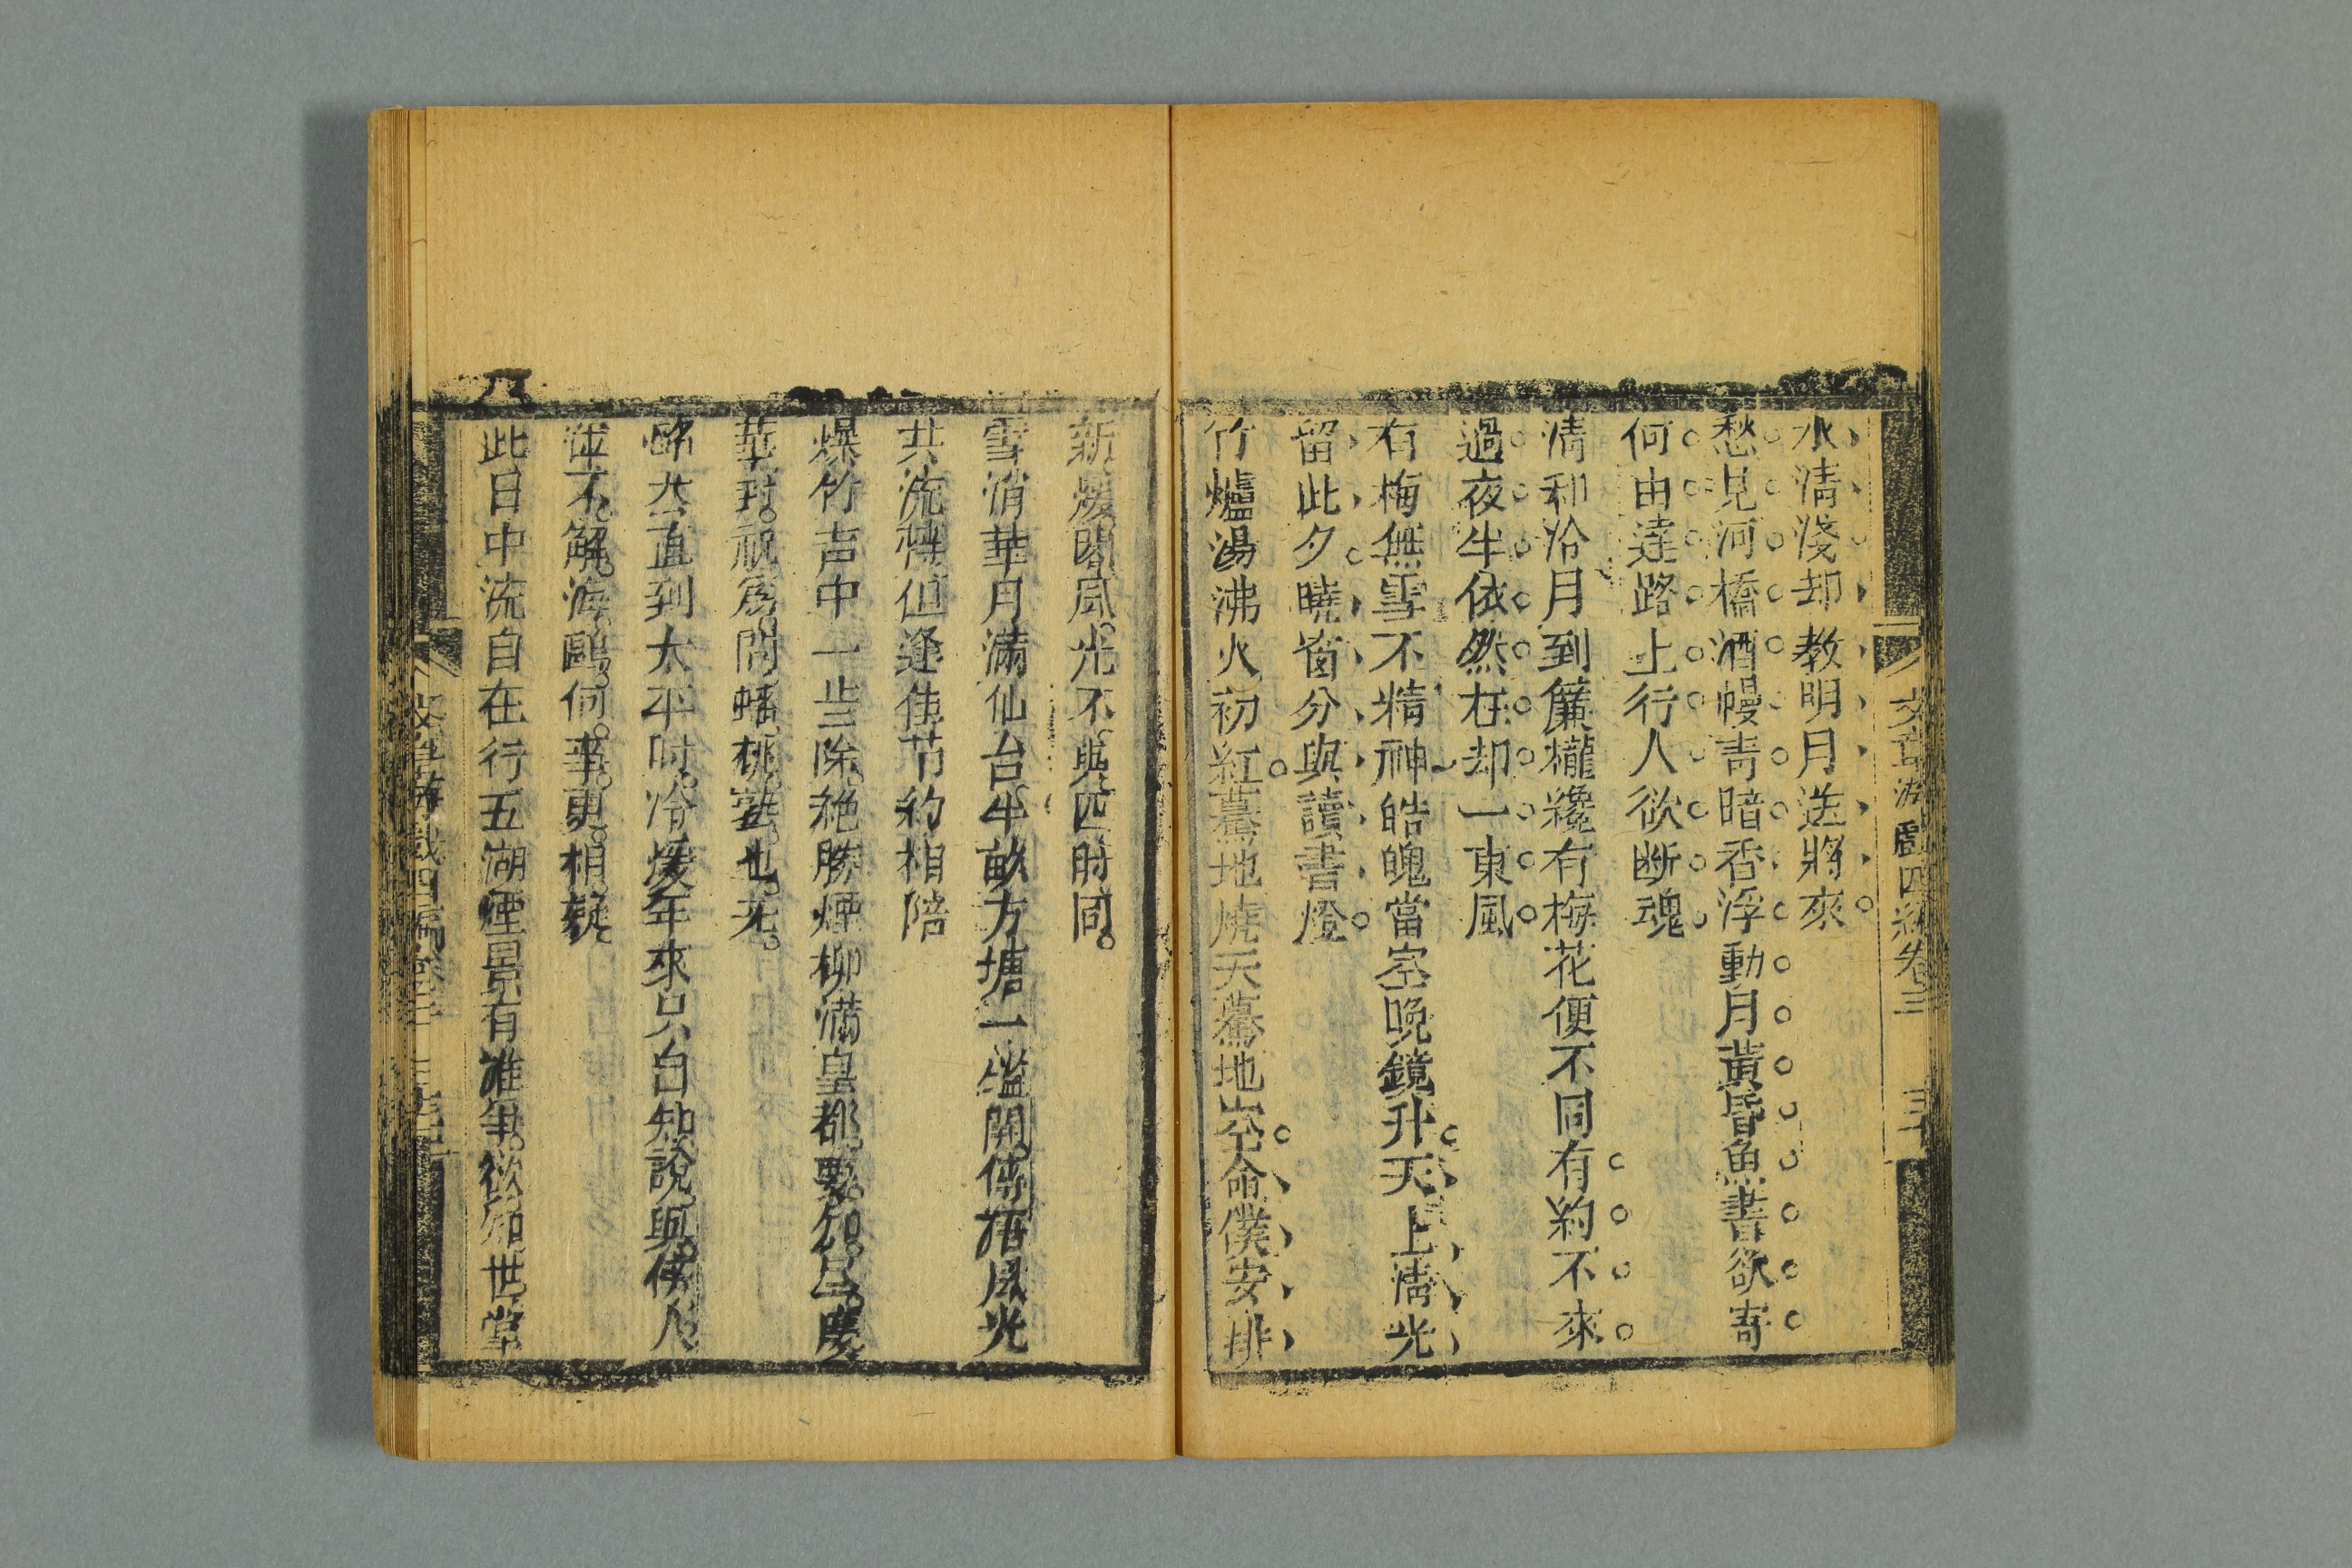 文章游戲四編卷三 三十
水清淺却教明月送將來
愁見河橋酒幔青暗香浮動月黃昏魚書欲寄
何由達路上行人欲断魂
清和洽月到簾櫳纔有梅花便不同有約不來
過夜半依然在却一東風
有梅無雪不精神皓魄當空晚鏡升天上清光
留此夕曉窗分與讀書燈
竹爐湯沸火初紅驀地燒天驀地空命僕安排
新煖閣風光不與四時同
雪消華月滿仙台半畝方塘一鑑開傳語風光
共流轉但逢佳节約相陪
爆竹声中一歲除絶勝煙柳滿皇都要知
華封祝爲問蟠桃熟也无
直到太平时冷煖年來只自知說與伊人
不解海鷗何事更相疑
此日中流自在行五湖煙景有誰爭欲知世掌
文章游戲四編卷三